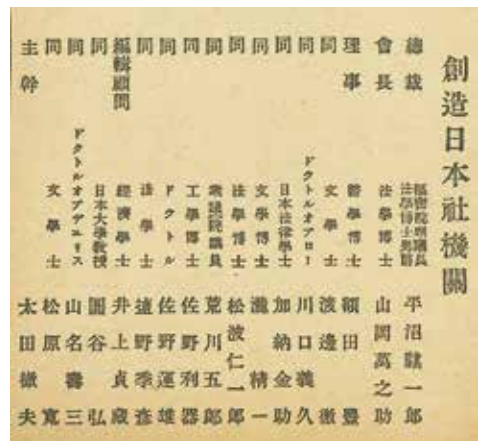 創造日本社機關
總裁 樞密院副議長 法學博士男爵 平沼騏一郎
會長 法學博士 山岡萬之助
理事 醫學博士 額田豐
同 文學士 渡邊徹
同 ドクトルオブロー 川口義久
同 日本法律學士 加納金助
同 文學博士 瀧精一
同 法學博士 松波仁一郎
同 衆議院議員 荒川五郎
同 工學博士 佐野利器
同 ドクトル 佐野運雄
同 法學士
編輯顧問 經濟學士 井上貞藏
同 日本大學教授 圓谷弘
同 ドクトルオブデユリス 山名壽三
同 文學士 松原寛
主幹 太田徹夫